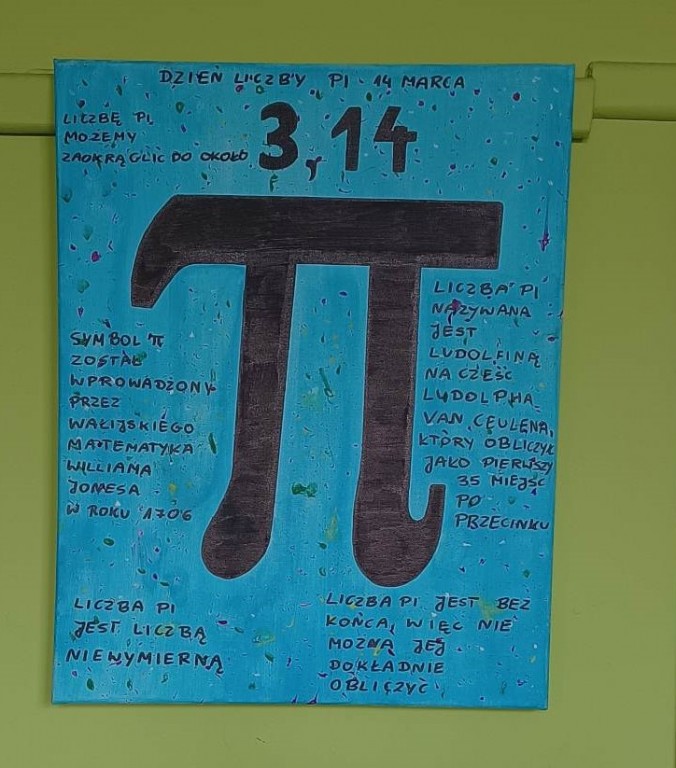 DZIEŃ LICZBY PI - 14 MARCA
LICZBĘ PI
MOŻEMY
ZAOKRĄGLIĆ DO OKOŁO
3,14
π
SYMBOL π
ZOSTAŁ
WPROWADZONY
PRZEZ
WALIJSKIEGO
MATEMATYKA
WILLIAMA
JONESA
W ROKU 1706
LICZBA PI
NAZYWANA
JEST
LUDOLFINĄ
NA CZEŚĆ
LUDOLPHA
VAN CEULENA,
KTÓRY OBLICZYŁ
JAKO PIERWSZY
35 MIEJSC
PO
PRZECINKU
LICZBA PI
JEST LICZBĄ
NIEWYMIERNĄ
LICZBA PI JEST BEZ
KOŃCA, WIĘC NIE
MOŻNA JEJ
DOKŁADNIE
OBLICZYĆ